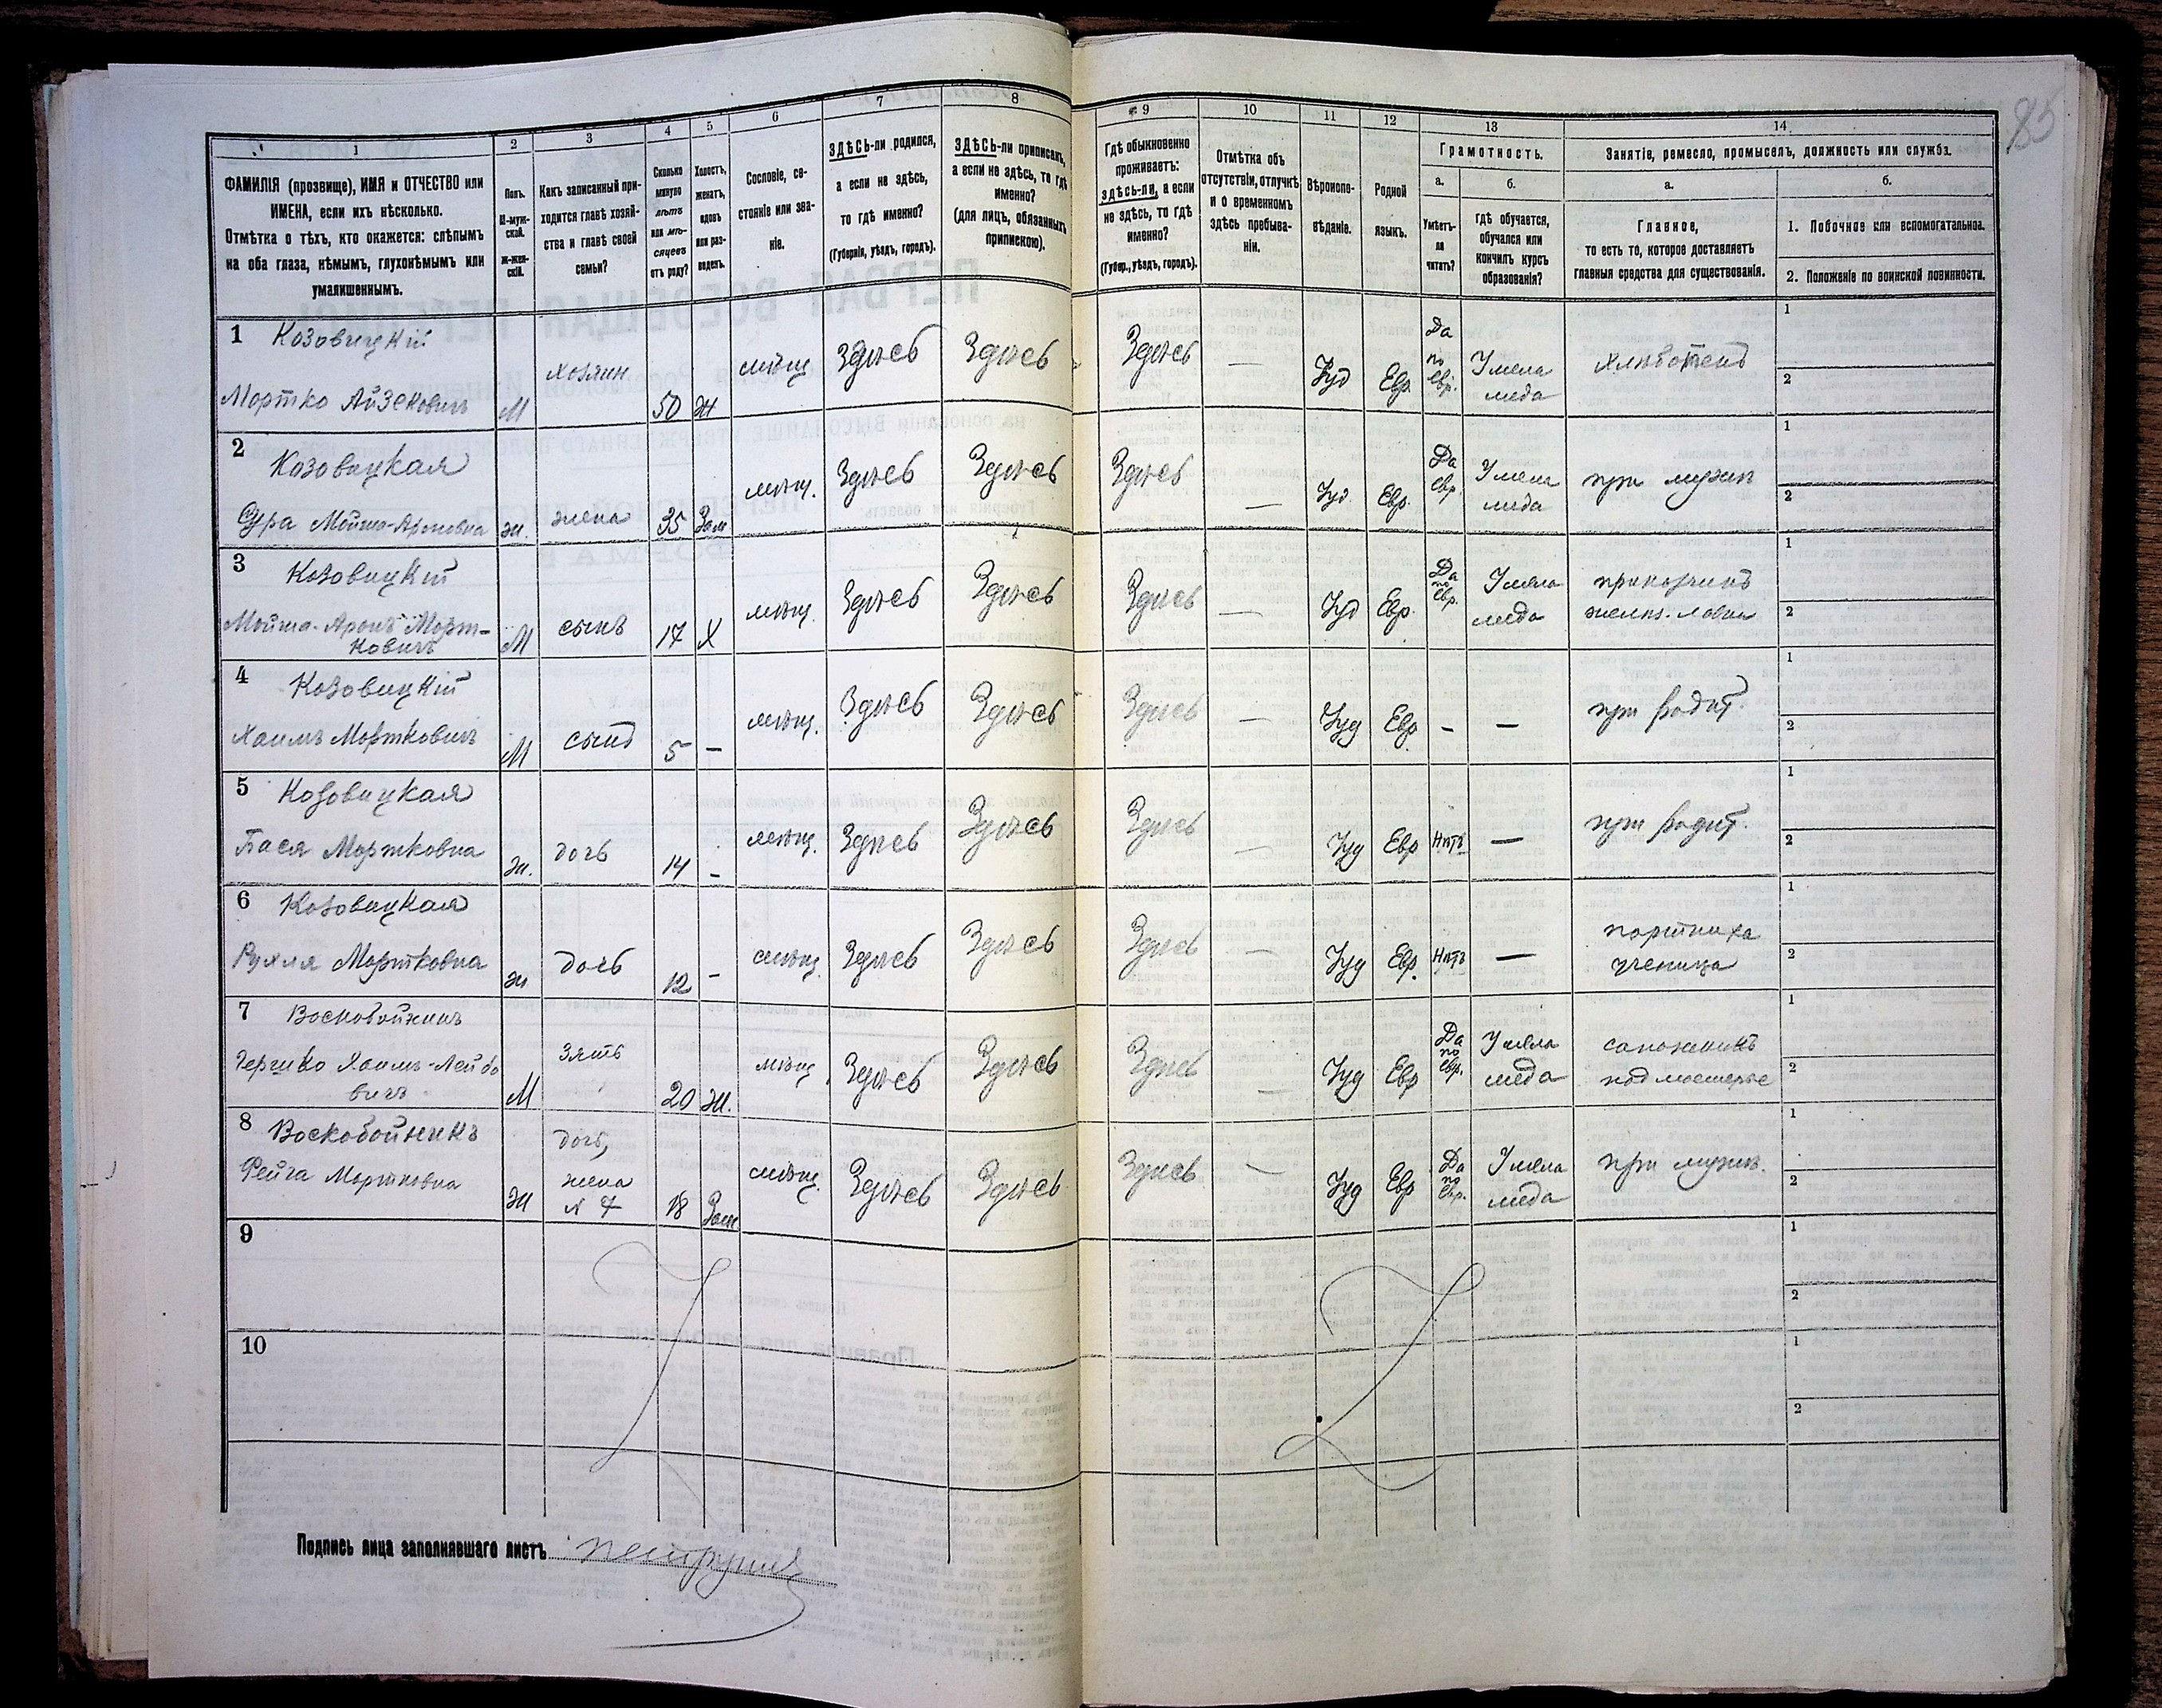 85
1 2 3 4 5 6 7 8 9 10 11 12 13 14
ФАМИЛІЯ (прозвище), ИМЯ и ОТЧЕСТВО или
ИМЕНА, если ихъ нѣсколько.
Отмѣтка о тѣхъ, кто окажется: слѣпымъ
на оба глаза, нѣмымъ, глухонѣмымъ или
умалишеннымъ.
Полъ.
М-муж-
ской.
ж-жен-
скій.
Какъ записанный при-
ходится главѣ хозяй-
ства и главѣ своей
семьи?
Сколько
минуло
лѣтъ
или мѣ-
сяцевъ
отъ роду?
Холостъ,
женатъ,
вдовъ
или раз-
веденъ.
Сословіе, со-
стояніе или зва-
ніе.
ЗДѢСЬ-ли родился,
а если не здѣсь,
то гдѣ именно?
(Губернія, уѣздъ, городъ).
ЗДѢСЬ-ли приписанъ,
а если не здѣсь, то гдѣ
именно?
(для лицъ, обязанныхъ
припискою).
Гдѣ обыкновенно
проживаетъ:
здѣсь-ли, а если
не здѣсь, то гдѣ
именно?
(Губер., уѣздъ, городъ).
Отмѣтка объ
отсутствіи, отлучкѣ
и о временномъ
здѣсь пребыва-
ніи.
Вѣроиспо-
вѣданіе.
Родной
языкъ.
Грамотность.
а. б.
Умѣетъ-
ли
читать?
гдѣ обучается,
обучался или
кончилъ курсъ
образованія?
Занятіе, ремесло, промыселъ, должность или служба.
а. б.
Главное,
то есть то, которое доставляетъ
главныя средства для существованія.
1. Побочное или вспомогательное.
2. Положеніе по воинской повинности.
1 Козовицкій
Мортко Айзековичъ М хозяинъ 50 Ж мѣщ Здѣсь Здѣсь Здѣсь — Іуд Евр. Да по Евр.
1
2
2 Козовицкая
Сура Мойше-Ароновна ж. жена 35 Зам мѣщ. Здѣсь Здѣсь Здѣсь — Іуд. Евр. Да Евр. при мужѣ
1
2
3 Козовицкій
Мойше-Аронъ Морт-
ковичъ М сынъ 17 Х мѣщ. Здѣсь Здѣсь Здѣсь — Іуд Евр. Да по Евр. приказчикъ
1
2
4 Козовицкій
Хаимъ Мортковичъ М сынъ 5 — мѣщ. Здѣсь Здѣсь Здѣсь — Іуд Евр. — — при родит.
1
2
5 Козовицкая
Бася Мортковна ж. дочь 14 — мѣщ. Здѣсь Здѣсь Здѣсь — Іуд Евр Нѣтъ — при родит.
1
2
6 Козовицкая
Рухля Мортковна ж дочь 12 — мѣщ. Здѣсь Здѣсь Здѣсь — Іуд Евр. Нѣтъ — портниха
ученица
1
2
7 Воскобойникъ
Гершко Хаимъ-Лейбо
вичъ М зять 20 ж. мѣщ. Здѣсь Здѣсь Здѣсь — Іуд Евр Да по Евр. сапожникъ
подмастерье
1
2
8 Воскобойникъ
Фейга Мортковна ж дочь,
жена
№ 7 18 Зам мѣщ. Здѣсь Здѣсь Здѣсь — Іуд Евр Да по Евр. при мужѣ.
1
2
9
1
2
10
1
2
Подпись лица заполнявшаго листъ